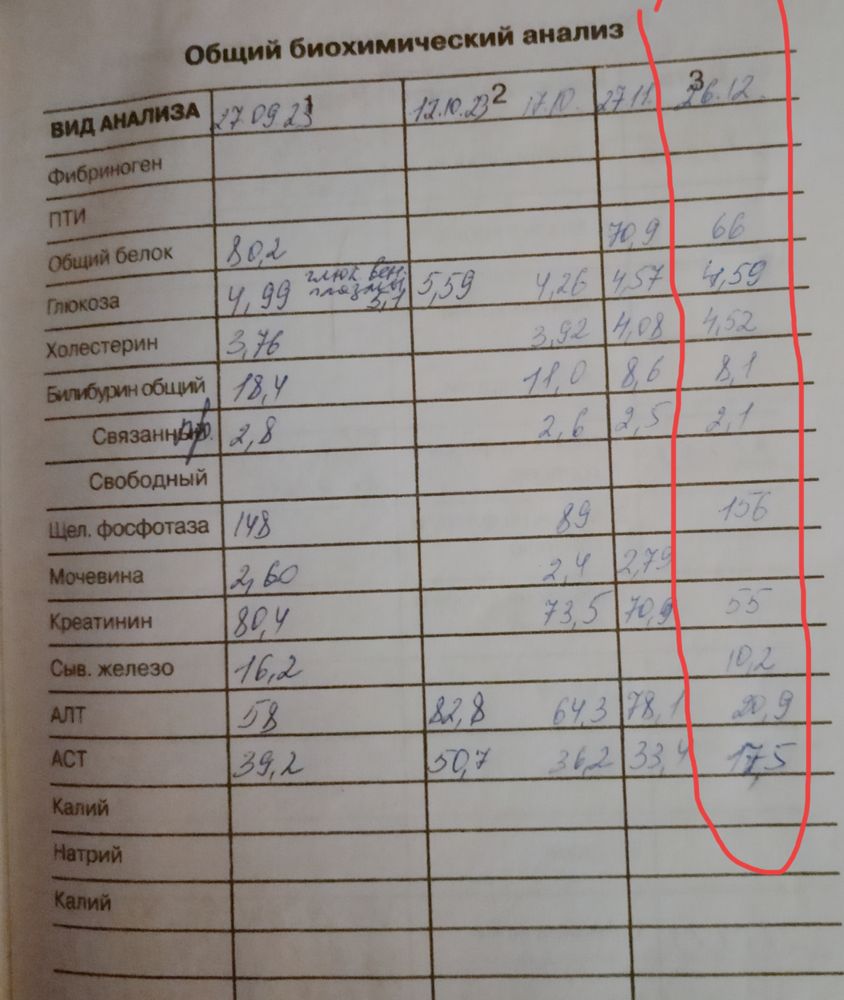 Общий биохимический анализ
ВИД АНАЛИЗА 27.09.23 1 12.10.23 2 17.10. 27.11. 3 26.12.
Фибриноген
ПТИ
Общий белок 80,2 70,9 66
Глюкоза 4,99 глюк. вен. плазмы 5,1 5,59 4,26 4,57 4,59
Холестерин 3,76 3,92 4,08 4,52
Билибурин общий 18,4 11,0 8,6 8,1
Связанный пр. 2,8 2,6 2,5 2,1
Свободный
Щел. фосфотаза 148 89 156
Мочевина 2,60 2,4 2,79
Креатинин 80,4 73,5 70,9 55
Сыв. железо 16,2 10,2
АЛТ 58 82,8 64,3 78,1 20,9
АСТ 39,2 50,7 36,2 33,4 17,5
Калий
Натрий
Калий